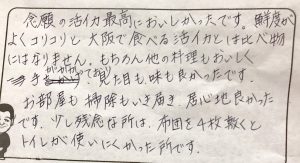 念願の活イカ最高においしかったです。鮮度が
よくコリコリと大阪で食べる活イカとは比べ物
にはなりません。もちろん他の料理もおいしく
手がかかっており見た目も味も良かったです。
お部屋も掃除もいき届き、居心地良かった
です。少し残念な所は、布団を4枚敷くと
トイレが使いにくかった所です。